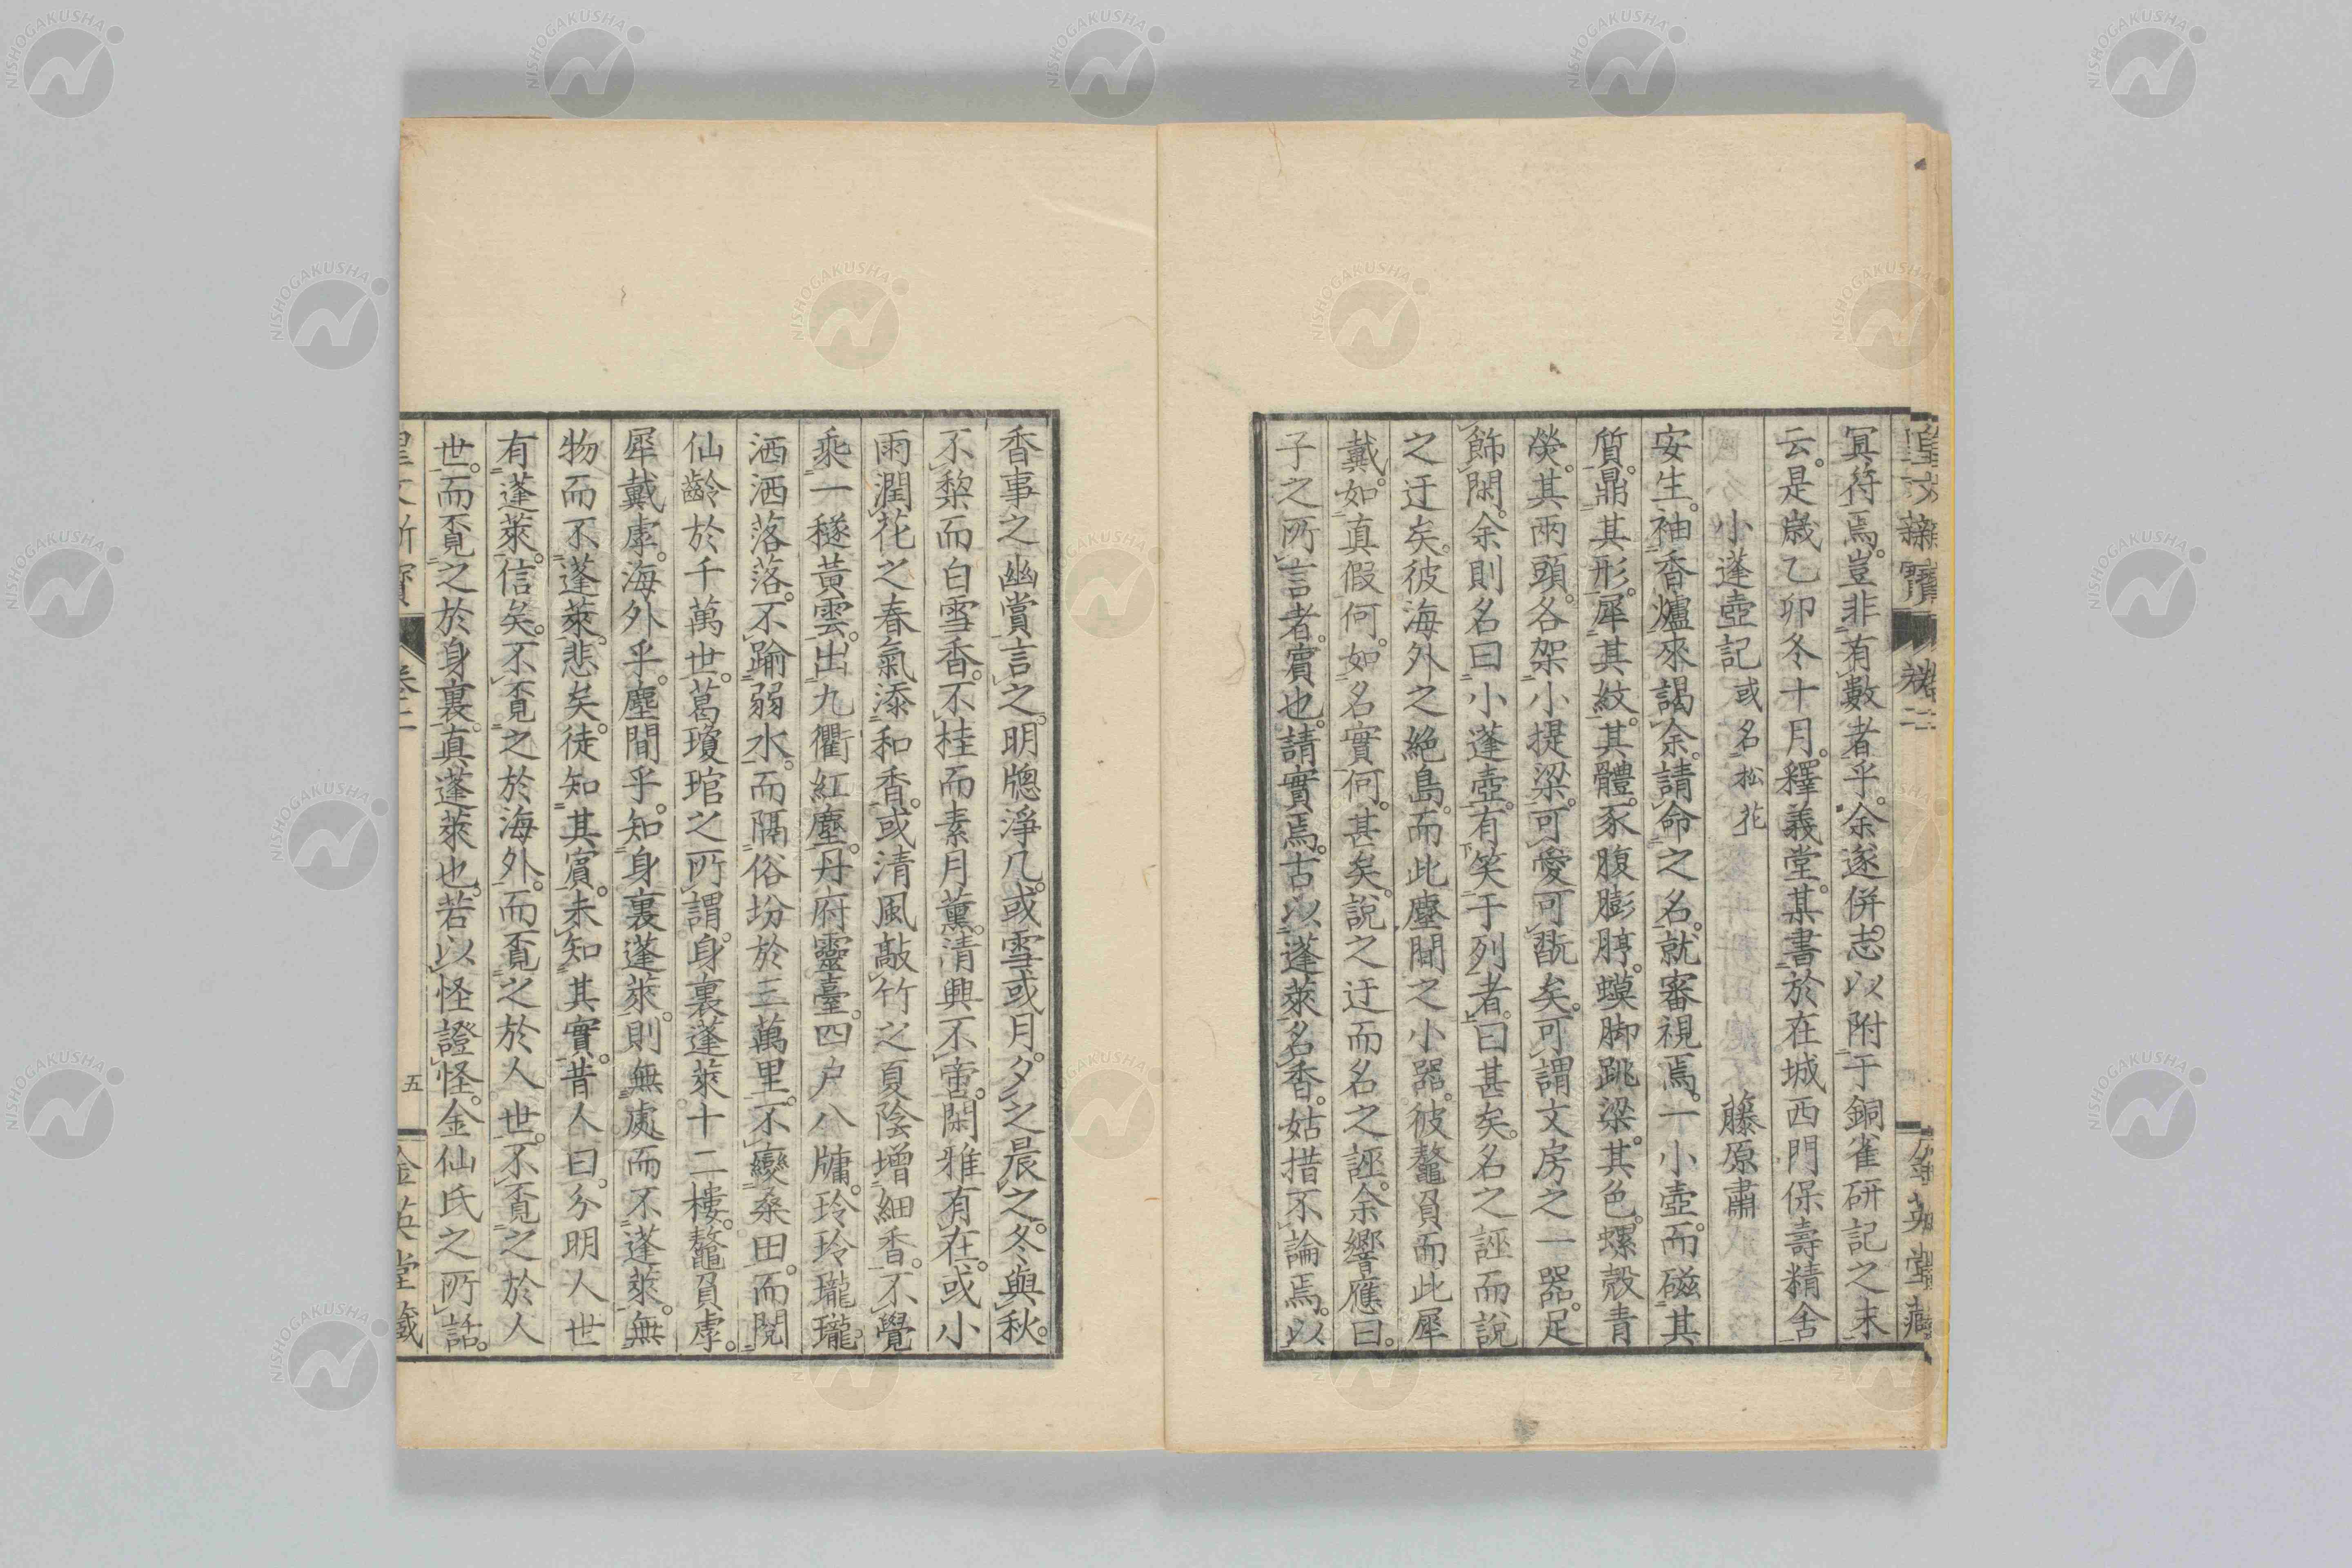 冥符焉。豈非有數者乎。余遂併志以附于銅雀研記之末
云。是歲乙卯冬十月。釋義堂。某書於在城西門保壽精舍
小蓬壺記 或名松花 藤原肅
安生。袖香爐來謁余。請命之名。就審視焉。一小壺。而磁其
質。鼎其形。犀其紋。其體。豕腹膨脝。蟆脚跳梁。其色。螺殼青
熒。其兩頭。各架小提梁。可愛可翫矣。可謂文房之一器。足
飾閑。余則名曰小蓬壺。有笑于列者。曰甚矣。名之誣而說
之迂矣。彼海外之絶島。而此塵間之小器。彼鼇負而此犀
戴。如真假何。如名實何。甚矣。說之迂而名之誣。余響應曰。
子之所言者。賓也。請實焉。古以蓬萊名香。姑措不論焉。以
香事之幽賞言之。明牕淨几。或雪或月。夕之晨。之冬。與秋。
不黎而白雪香。不桂而素月薰。清興不啻。閑雅有在。或小
雨潤花之春氣添和香。或清風敲竹之夏陰增細香。不覺
乘一穟黃雲。出九衢紅塵。丹府靈臺。四戶八牖。玲玲瓏瓏。
洒洒落落。不踰弱水。而隔俗坋於三萬里。不變桑田。而閱
仙齡於千萬世。葛瓊琯之所謂。身裏蓬萊十二樓。鼇負虖。
犀戴虖。海外乎。塵間乎。知身裏蓬萊。則無處而不蓬萊。無
物而不蓬萊。悲矣。徒知其賓。未知其實。昔人曰。分明人世
有蓬萊。信矣。不覓之於海外。而覓之於人世。不覓之於人
世。而覓之於身裏。真蓬萊也。若以怪證怪。金仙氏之所話。
卷二
五
金英堂藏